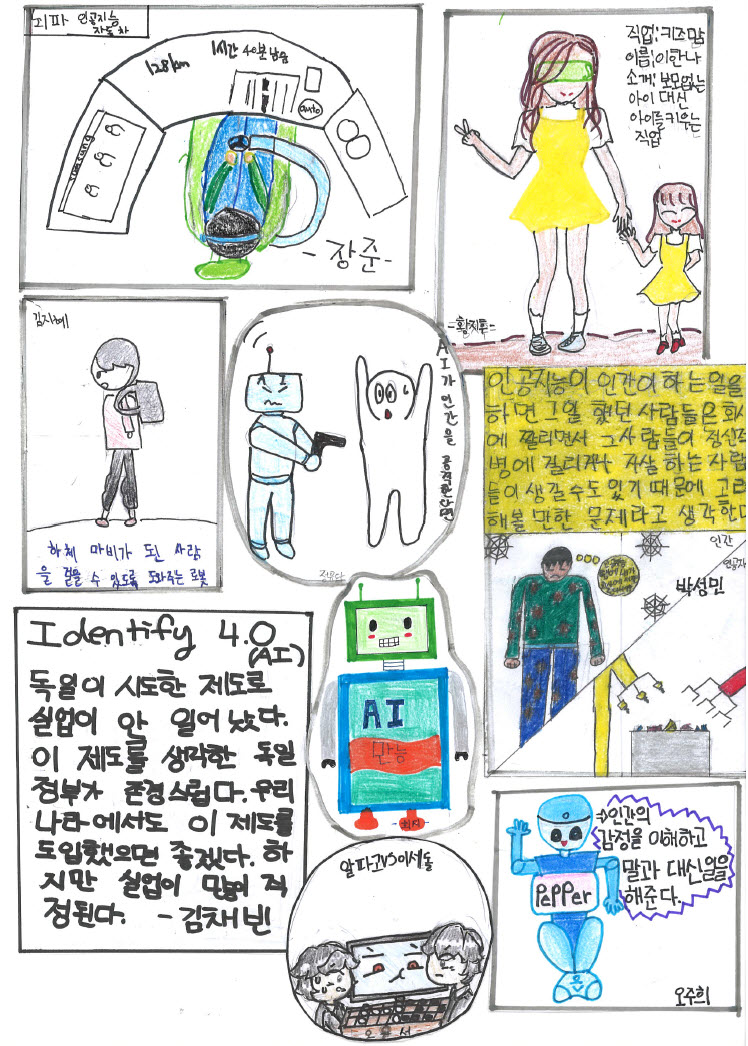 뇌파 인공지능
자동차
128km
1시간 40분 남음
auto
samsung
-장준-
직업: 키즈맘
이름: 이한나
소개: 보모없는
아이 대신
아이들키우는
직업
-황지후-
김지혜
하체 마비가 된 사람
을 걸을 수 있도록 도와주는 로봇
AI가 인간을 공격한다면
AI
인공지능이 인간이 하는일을
하면 그일 했던 사람들은 회사
에 짤리면서 그사람들이 정신적
병에 걸리거나 자살 하는 사람
들이 생길수도 있기 때문에 고려
해볼 만한 문제라고 생각한다
인간
인공지
박성민
Identify 4.0
(AI)
독일이 시도한 제도로
실업이 안 일어 났다.
이 제도를 생각한 독일
정부가 존경스럽다. 우리
나라에서도 이 제도를
도입했으면 좋겠다. 하
지만 실업이 많이 걱
정된다. -김채빈
AI
만능
알파고VS이세돌
⇒인간의
감정을 이해하고
말과 대신일을
해준다.
PePPer
오주희